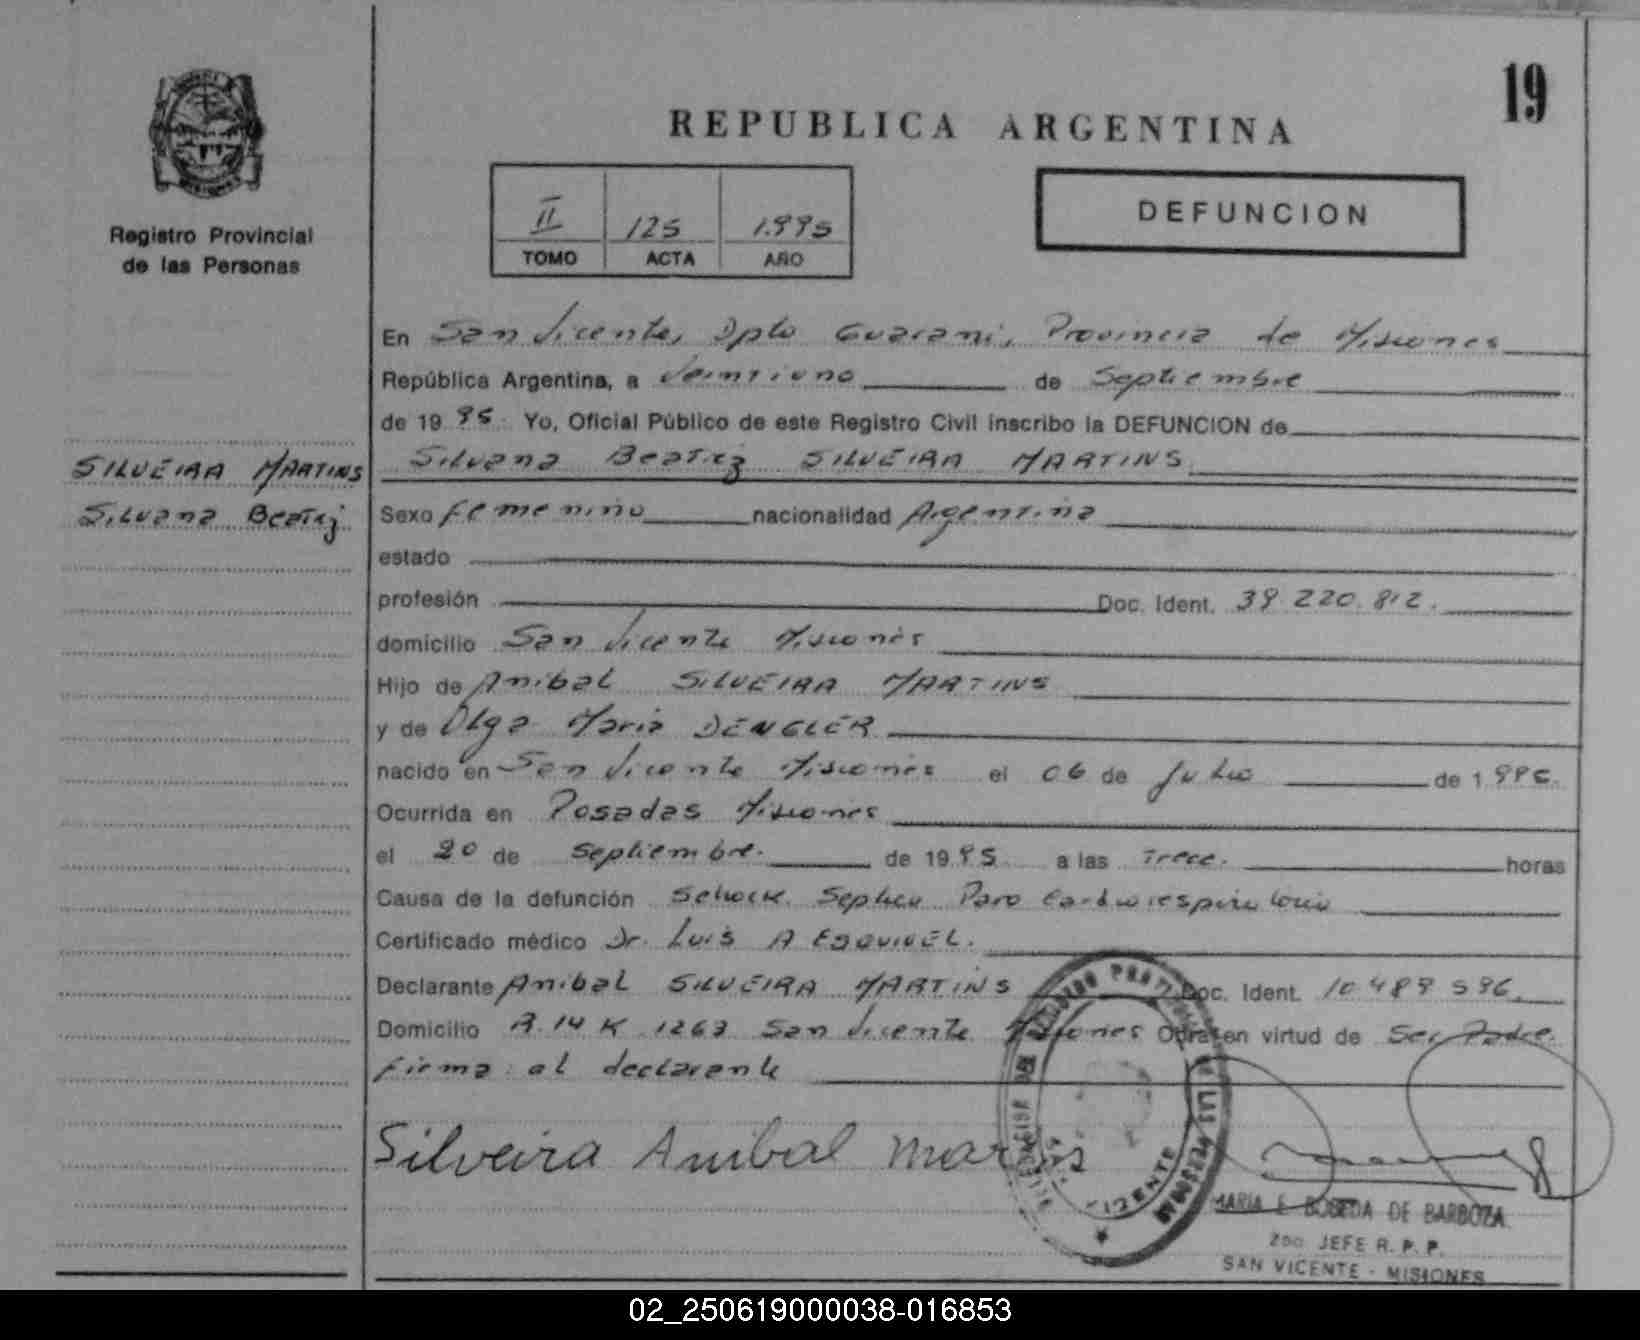 19
REPUBLICA ARGENTINA
Registro Provincial
de las Personas
II 125 1.995
TOMO ACTA AÑO
DEFUNCION
En San Vicente, Dpto Guarani, Provincia de Misiones
República Argentina, a Veintiuno de Septiembre
de 19 95 Yo, Oficial Público de este Registro Civil inscribo la DEFUNCION de
SILVEIRA MARTINS
Silvana Beatriz
Silvana Beatriz SILVEIRA MARTINS
Sexo femenino nacionalidad Argentina
estado
profesión Doc. Ident. 39.220.812.
domicilio San Vicente Misiones
Hijo de Anibal SILVEIRA MARTINS
y de Olga Maria DENGLER
nacido en San Vicente Misiones el 06 de Julio de 1.995.
Ocurrida en Posadas Misiones
el 20 de Septiembre. de 19 95 a las Trece. horas
Causa de la defunción Schock Septico Paro Cardiorespiratorio
Certificado médico Dr. Luis A ESQUIVEL.
Declarante Anibal SILVEIRA MARTINS Doc. Ident. 10.489.596.
Domicilio A. 14 K 1263 San Vicente Misiones Obra en virtud de Ser Padre.
firma: el declarante
Silveira Anibal Martins
MARIA E. BOBEDA DE BARBOZA
2do. JEFE R. P. P.
SAN VICENTE - MISIONES
VICENTE
02_250619000038-016853